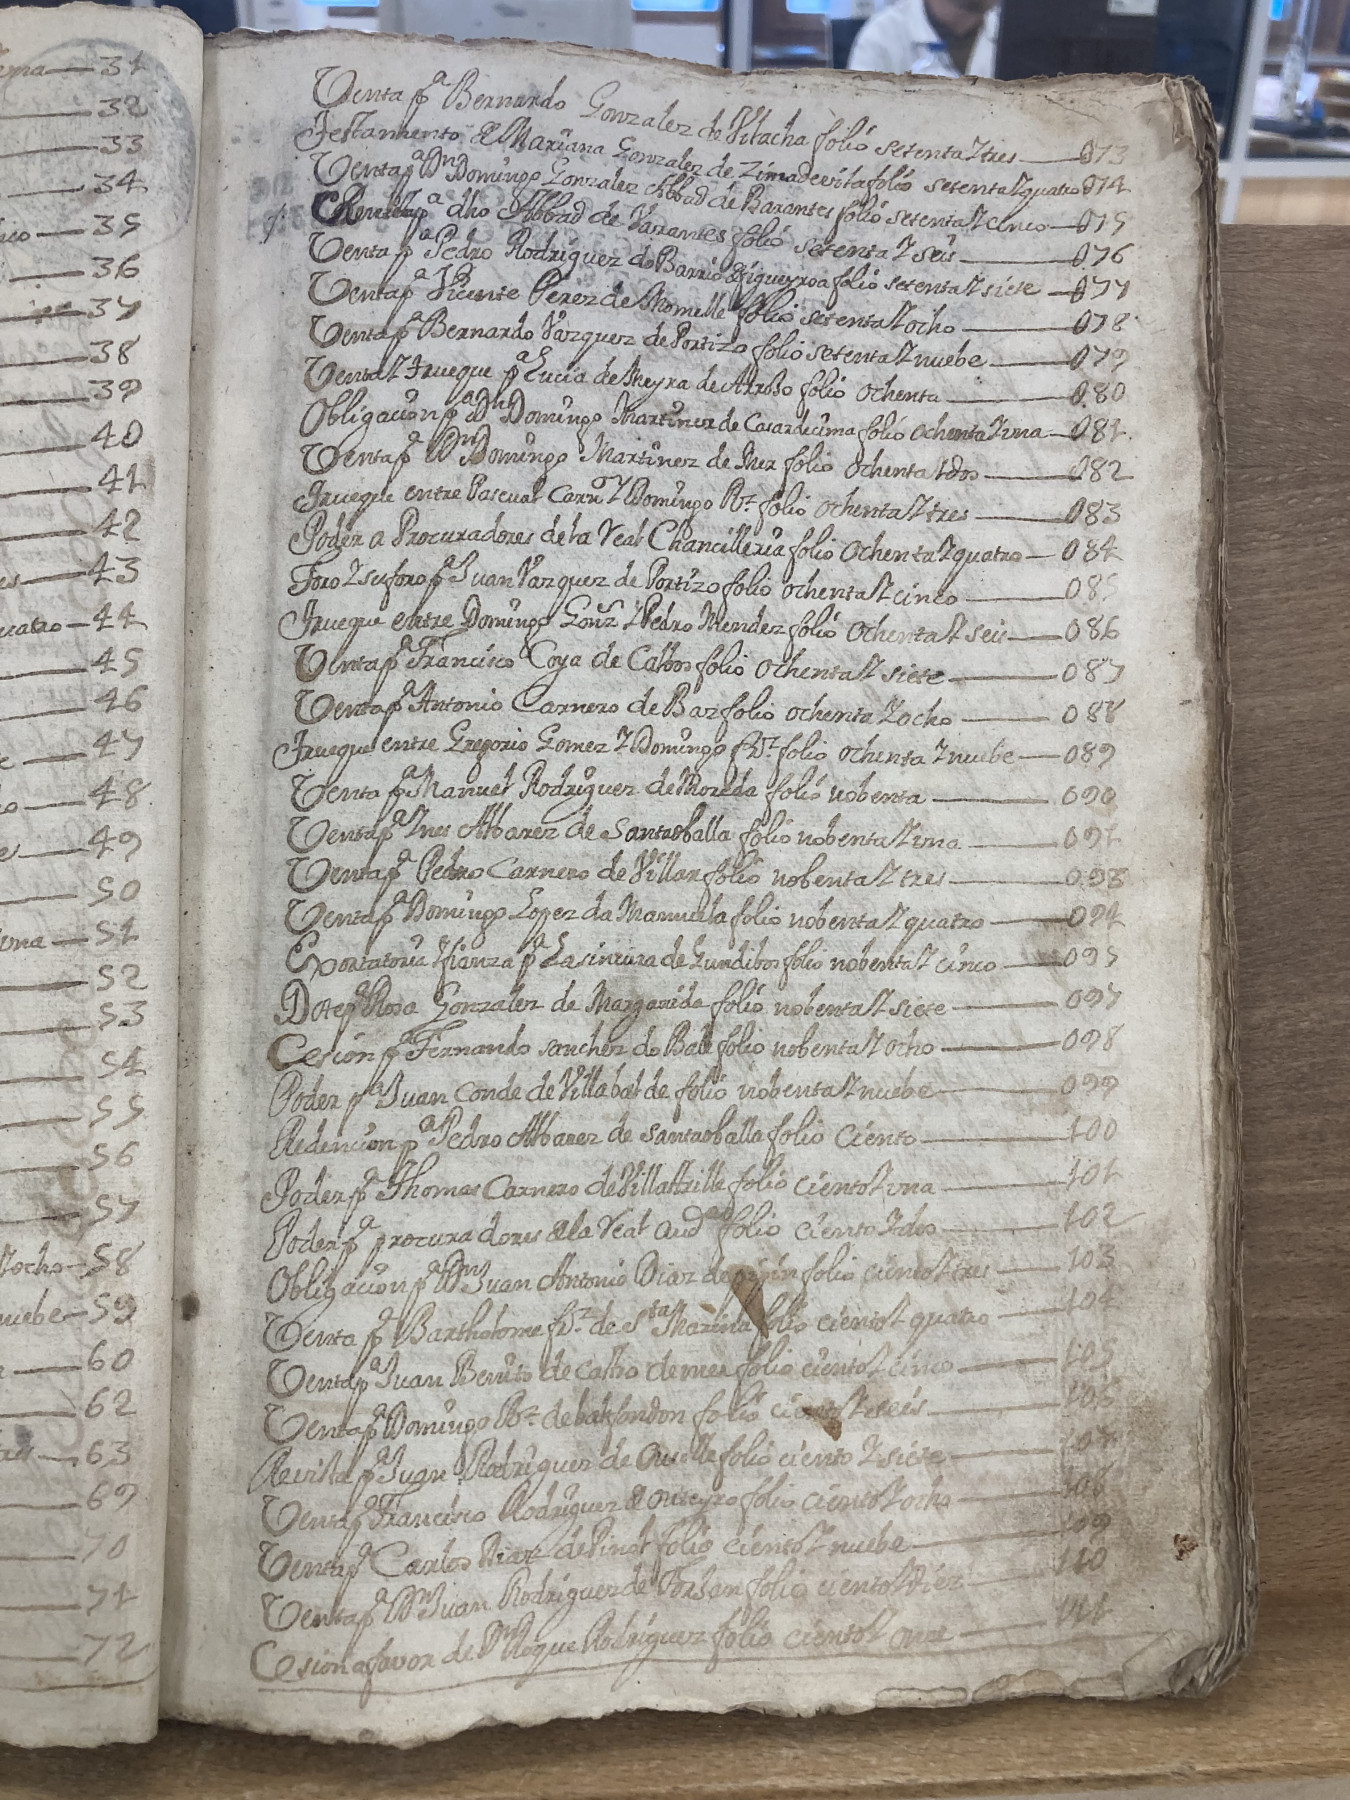 31
32
33
34
35
36
37
38
39
40
41
42
43
44
45
46
47
48
49
50
51
52
53
54
55
56
57
58
59
60
62
63
69
70
71
72
Venta pª Bernardo Gonzalez de Vilacha folio setenta Ztres 073
Testamento de Mariana Gonzalez de folio setenta Zquatro 074
Venta pª Dn Domingo Gonzalez Abbad de Barantes folio setenta Z cinco 075
pª dho Abbad de Varantes folio setenta Z seis 076
Venta pª Pedro Rodriguez do Barrio de figueyroa folio setenta Z siete 077
Venta pª Vicente Perez de Thomelle folio setenta Z ocho 078
Venta pª Bernardo Vazquez de Portizo folio setenta Z nuebe 079
Venta Z trueque pª Lucia de Neyra de folio ochenta 080
Obligacion pª Dn Domingo Martinez de Casardecima folio ochenta Z una 081
Venta pª Dn Domingo Martinez de Mer folio ochenta Z dos 082
Trueque entre Pascual Carnº Z Domingo Rz. folio ochenta Z tres 083
Poder a Procuradores de la Real Chancilleria folio ochenta Z quatro 084
Foro Z suforo pª Juan Vazquez de Portizo folio ochenta Z cinco 085
Trueque entre Domingo Gonz Z Pedro Mendez folio ochenta Z seis 086
Venta pª Francisco Coya de Calbos folio ochenta Z siete 087
Venta pª Antonio Carnero de Baz folio ochenta Z ocho 088
Trueque entre Gregorio Gomez Z Domingo frz. folio ochenta Z nuebe 089
Venta pª Manuel Rodriguez de Moreda folio nobenta 090
Venta pª Ines Albarez de Santaoballa folio nobenta Z una 091
Venta pª Pedro Carnero de Villar folio nobenta Z tres 093
Venta pª Domingo Lopez da Manuela folio nobenta Z quatro 094
Exortatoria Z fianza pª La sincura de Gundibos folio nobenta Z cinco 095
Dote pª Rosa Gonzalez de Margarida folio nobenta Z siete 097
Cesion pª Fernando sanchez do Bale folio nobenta Z ocho 098
Poder pª Juan Conde de Villabalde folio nobenta Z nuebe 099
Redencion pª Pedro Albarez de santaoballa folio Ciento 100
Poder pª Thomas Carnero de folio ciento Z una 101
Poder pª procuradores de la Real audª folio ciento Z dos 102
Obligacion pª Dn Juan Antonio Diaz de folio ciento Z tres 103
Venta pª Bartholome frz. de Sta Marina folio ciento Z quatro 104
Venta pª Juan Benito de castro de mer folio ciento Z cinco 105
Venta pª Domingo Rz. de folio ciento Z seis 106
Revista pª Juan Rodriguez de folio ciento Z siete 107
Venta pª Francisco Rodriguez de outeyro folio ciento Z ocho 108
Venta pª Carlos Diaz de Pinol folio ciento Z nuebe 109
Venta pª Dn Juan Rodriguez de folio ciento Z diez 110
Cesion a favor de Dn Roque Rodriguez folio ciento Z once 111